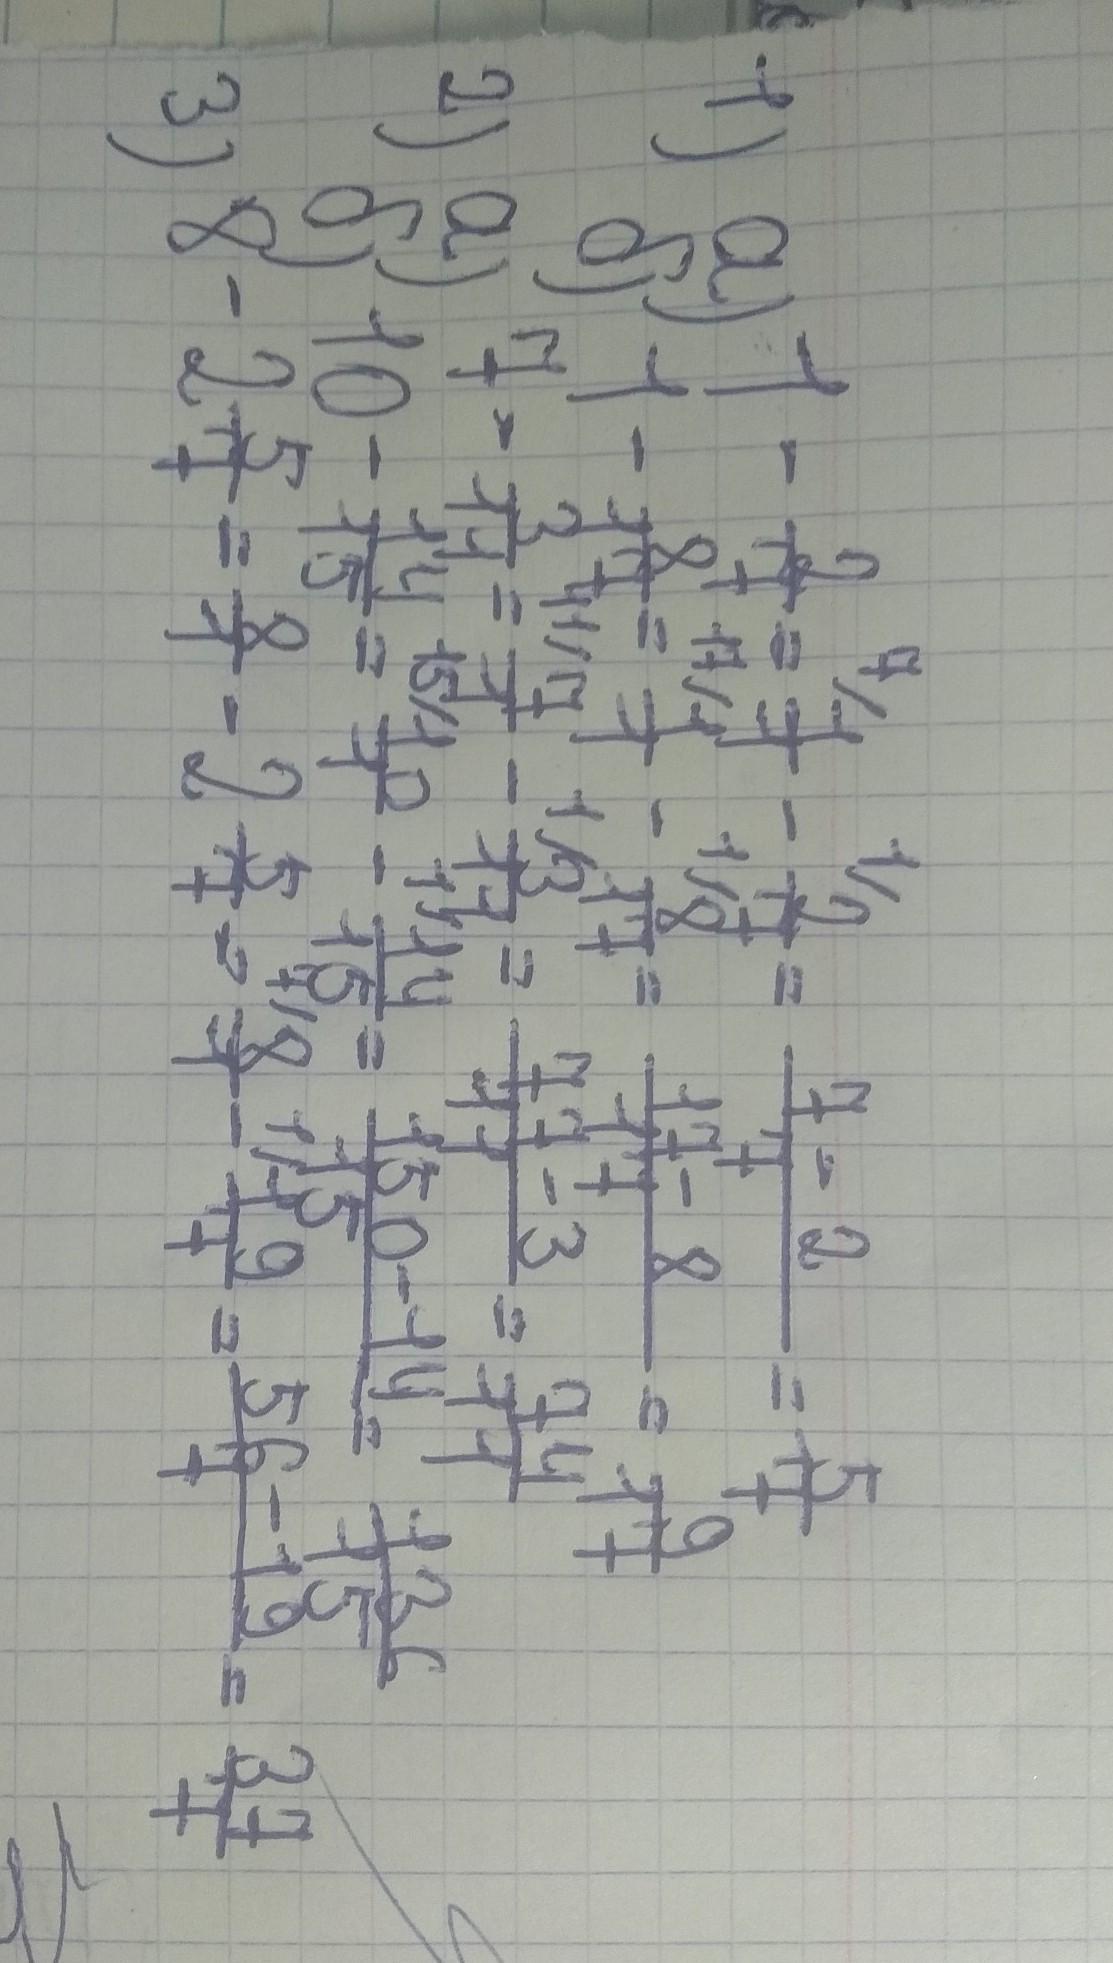 1) а) 1 - 2/7 = 1/1 7/ - 2/7 1/ = 7-2/7 = 5/7
б) 1 - 8/17 = 1/1 17/ - 8/17 1/ = 17-8/17 = 9/17
2) а) 7 - 3/11 = 7/1 11/ - 3/11 1/ = 77-3/11 = 74/11
б) 10 - 14/15 = 10/1 15/ - 14/15 1/ = 150-14/15 = 136/15
3) 8 - 2 5/7 = 8/1 - 2 5/7 = 8/1 7/ - 19/7 1/ = 56-19/7 = 37/7